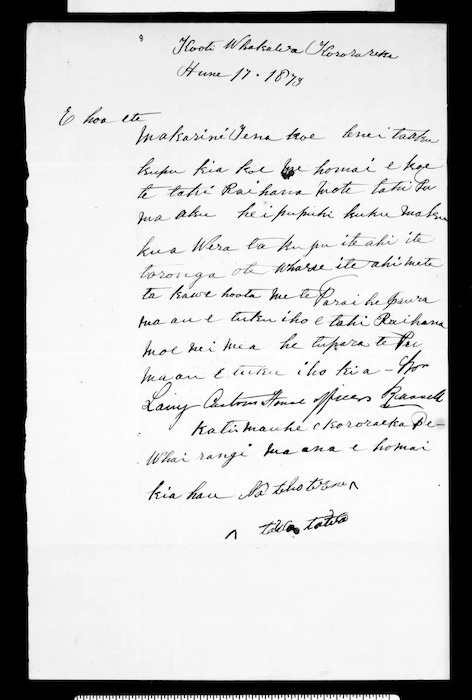 Kooti Whakawa Kororareka
Hune 17. 1873
E hoa e te
Makarini Tena koe tenei taaku
kupu kia koe me homai e koe
te tahi Raihana mote tahi Pu
ma aku hei pupuhi kuku maku
kua Wera ta ku pu ite ahi ite
toronga ote Wharse ite ahi mete
ta kawe hoata me te Parai he paura
ma au e tuku iho e tahi Raihana
moe nei mea he tupara te Pu
ma au e tuku iho kia - Mr
Lairy Custom House officer Russell
Katii mauhe Kororareka Pe-
Whai rangi ma ana e homai
kia hau Na te
tawatawa